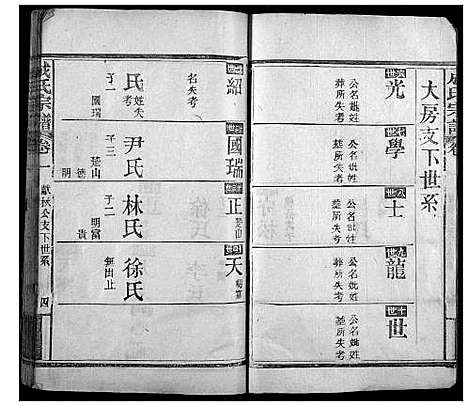 大房支下世系
六世
光
公名妣姓
葬所失考
七世
學
公名妣姓
葬所失考
八世
士
公名妣姓
葬所失考
九世
龍
公名妣姓
墓所失考
十世
世
公名妣姓
墓所失考
紹
名失考
氏
姓失考
子二
國瑞
國瑞
尹氏
子三
楚山
德
明
正
楚山
林氏
子二
明富
貴
天
徐氏
無出止
成氏宗譜
卷一
獻挾公支下世系
四